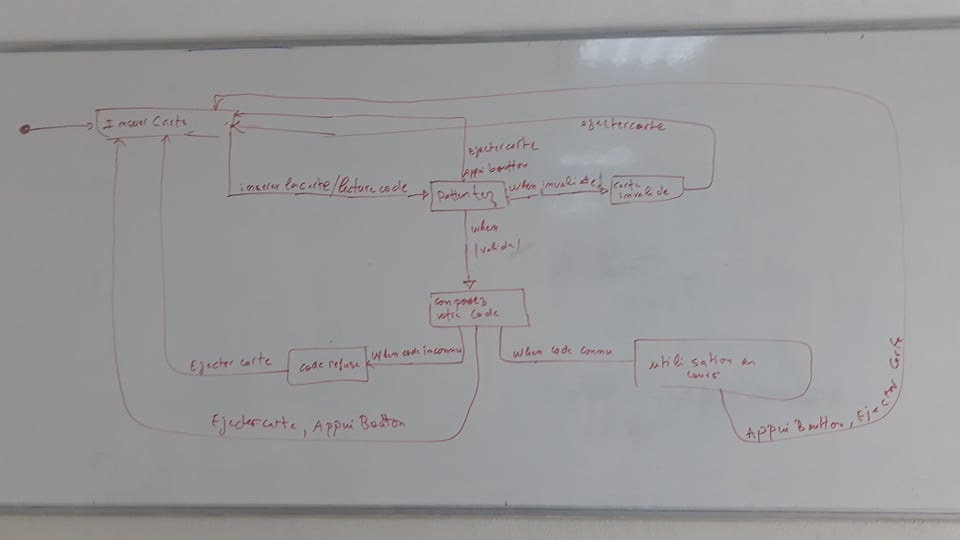 Inserer Carte
ejectercarte
Ejectercarte
Appui boutton
inserer la carte / lecture code
patientez
when invalide
carte
invalide
when
|valide|
composez
votre code
Ejector carte
code refuse
When code inconnu
When code connu
utilisation en
cours
Ejecter carte, Appui Boutton
Appui Boutton, Ejector Carte